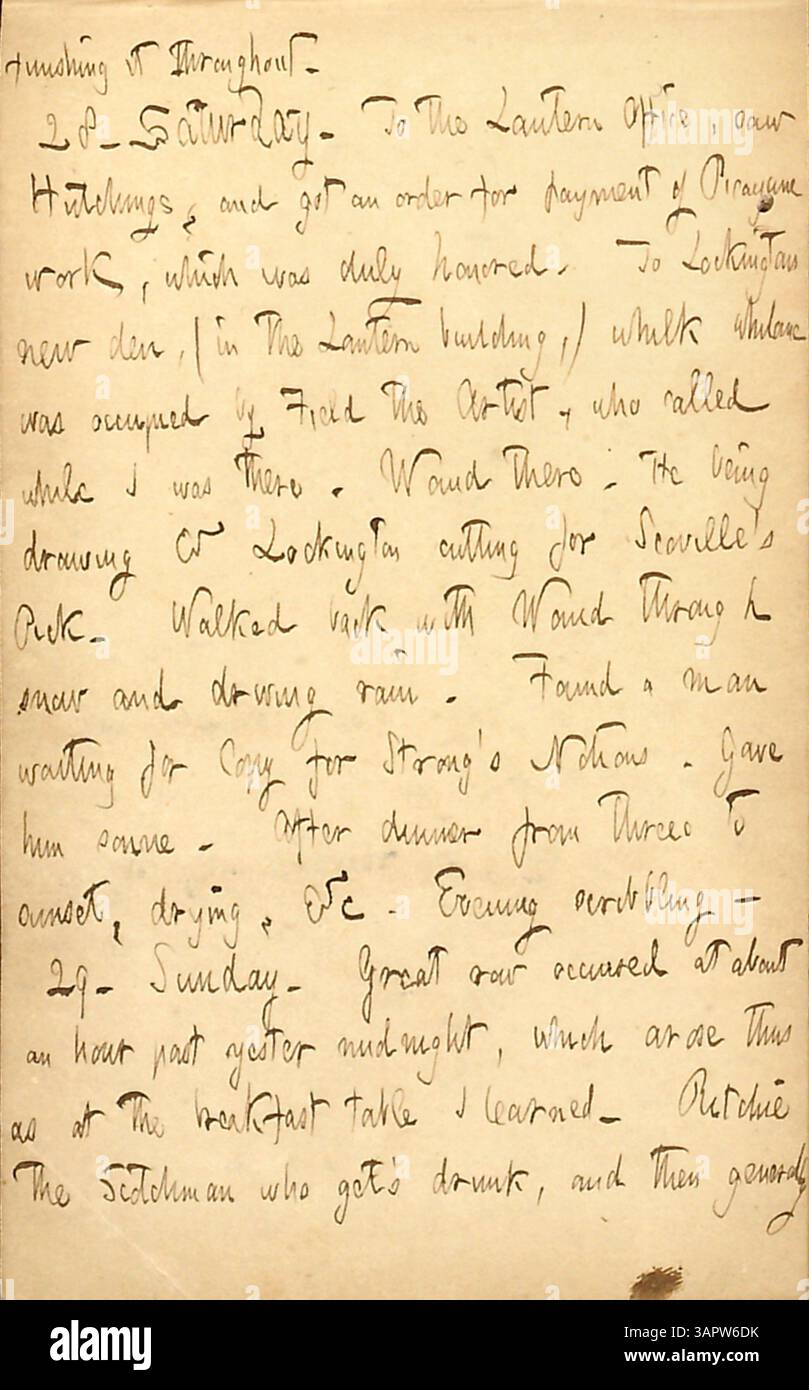 finishing it throughout.
28. Saturday. To the Lantern Office, saw
Hutchings, and got an order for payment of Picayune
work, which was duly honored. To Lockingtons
new den, (in the Lantern building,) whilk whilome
was occupied by Field the Artist, who called
while I was there. Waud there. He being
drawing & Lockington cutting for Scoville's
Pick. Walked back with Waud through
snow and driving rain. Found a man
waiting for Copy for Strong's Notions. Gave
him some. After dinner from three to
sunset, drying, &c. Evening scribbling —
29. Sunday. Great row occured at about
an hour past yester midnight, which arose thus
as at the breakfast table I learned. Ritchie
the Scotchman who get's drunk, and then generally
alamy
Image ID: 3APW6DK
www.alamy.com